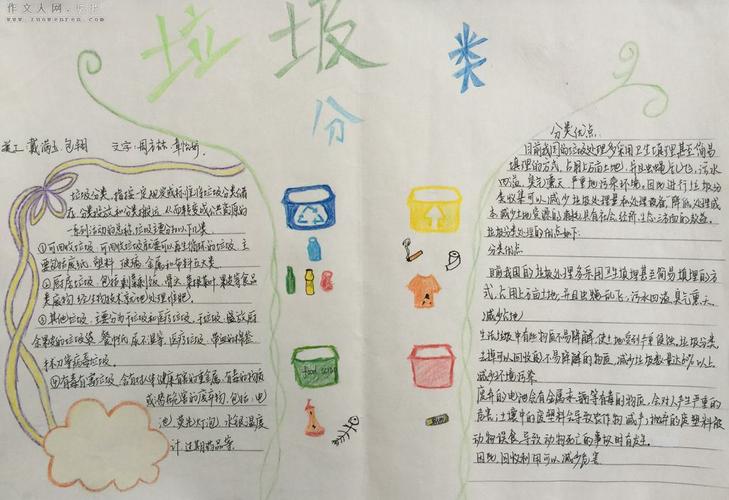 作文人网
www.zuowenren.com
垃 圾
分
类
文字:
垃圾分类,指按一定规定或标准将垃圾分类储
存、分类投放和分类搬运,从而转变成公共资源的
一系列活动的总称。垃圾主要分以下几类
①可回收垃圾,可回收垃圾主要可以再生循环的垃圾,主
要包括废纸,塑料,玻璃,金属和布料五大类
②厨房垃圾,包括剩菜剩饭,骨头,菜根菜叶,果皮等食品
类废物,
③其他垃圾,主要分为干垃圾和医疗垃圾,干垃圾,
果皮的垃圾袋,餐巾纸,尿不湿等,医疗垃圾,带血的棉签
手术刀等病毒垃圾。
④有毒有害垃圾,含有对人体健康有害的重金属,有毒的物质
或潜在危害的废弃物,包括:电
池,荧光灯泡,水银温度
计,过期药品等
food scrap
分类优点
目前我国的垃圾处理多采用卫生填埋甚至简易
填埋的方式,占用上万亩土地,并且虫蝇乱飞,污水
四溢,臭气熏天,严重地污染环境,因此进行垃圾分
类收集可以减少垃圾处理量和处理设备,降低处理成
本,减少土地资源的消耗,具有社会,经济,生态三方面的效益。
垃圾分类处理的优点如下:
分类优点
目前我国的垃圾处理多采用卫生填埋甚至简易填埋的方
式,占用上万亩土地,并且虫蝇乱飞,污水四溢,臭气熏天。
减少占地
生活垃圾中有些物质不易降解,使土地受到严重侵蚀,垃圾分类,
去掉可以回收的,不易降解的物质,减少垃圾数量达60%以上
减少环境污染
废弃的电池含有金属汞、镉等有毒的物质,会对人产生严重的
危害,土壤中的废塑料会导致农作物减产;抛弃的废塑料被
动物误食,导致动物死亡的事故时有发生。
因此回收利用可以减少危害